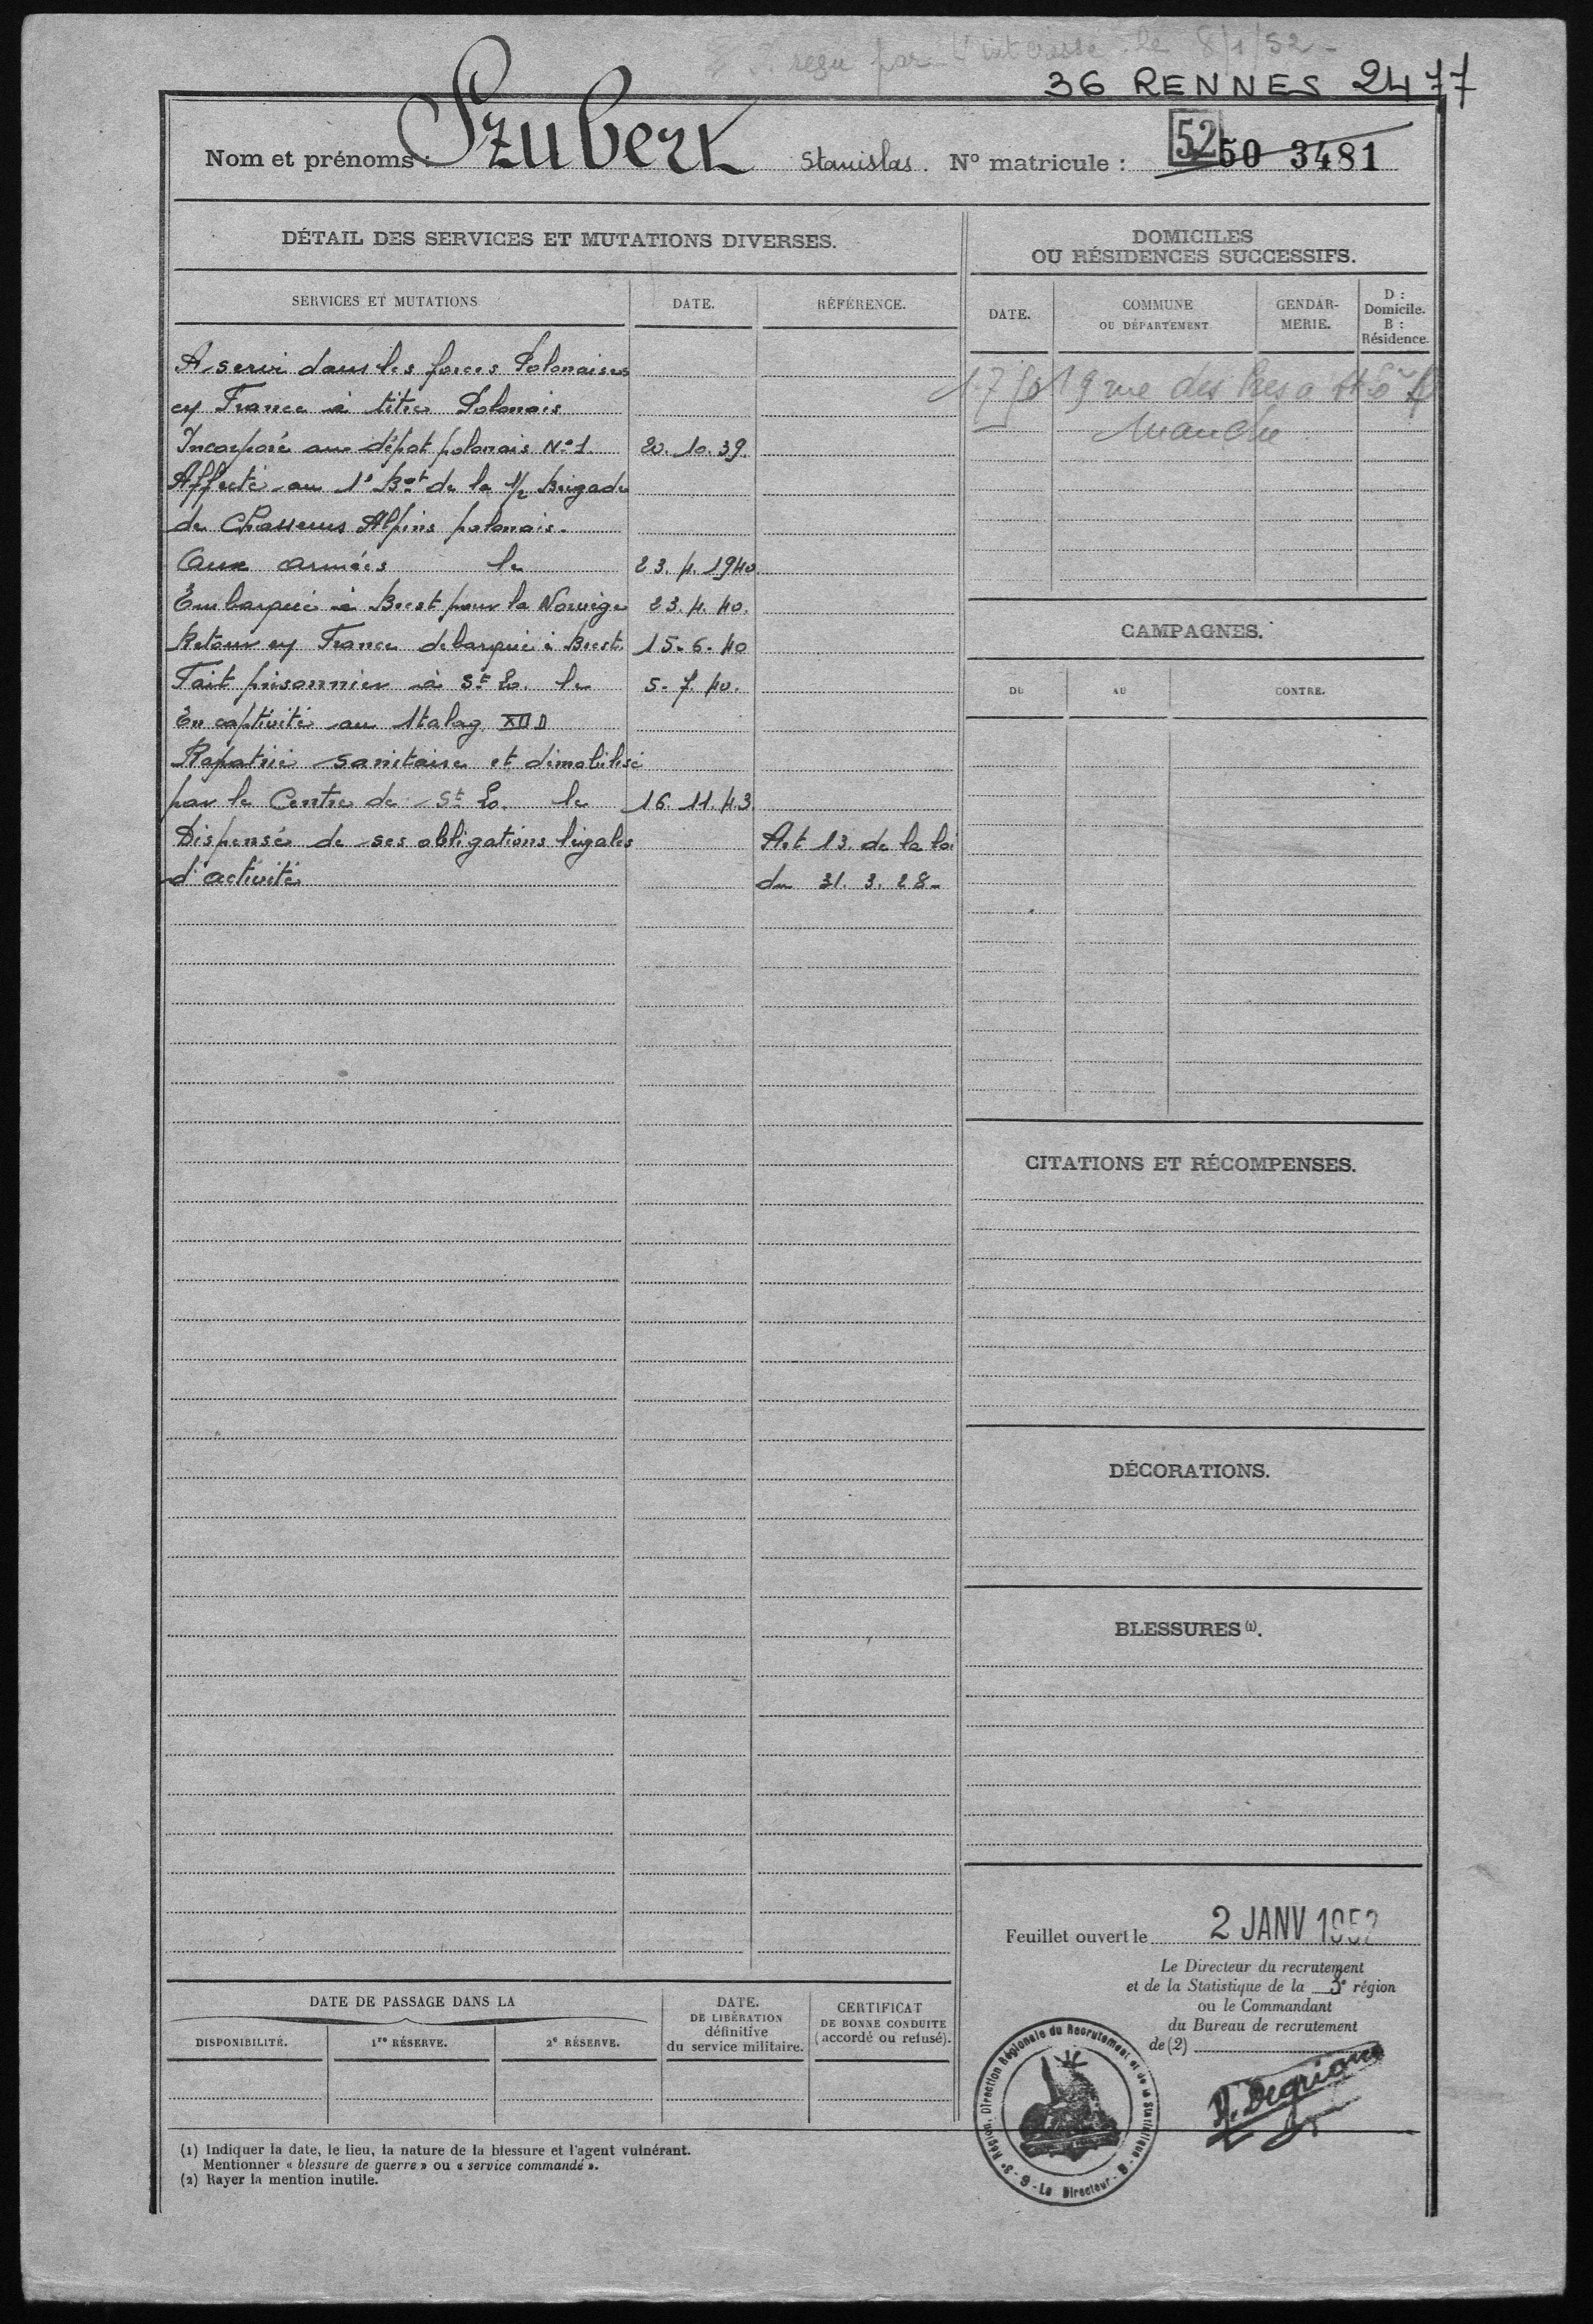 reçu par l'intéressé le 8/1/52 -
36 RENNES 2477
Nom et prénoms : Szuberk Stanislas. N° matricule : 52 50 3481
DÉTAIL DES SERVICES ET MUTATIONS DIVERSES.
SERVICES ET MUTATIONS
DATE.
RÉFÉRENCE.
A servi dans les forces Polonaises
en France à titre Polonais
Incorporé au dépôt polonais N°1 20. 10. 39.
Affecté au 1° Bon de la 1/2 Brigade
de Chasseurs Alpins polonais.
Aux armées le 23. 4. 1940
Embarqué à Brest pour la Norvège 23. 4. 40.
Retour en France débarqué à Brest 15. 6. 40
Fait prisonnier à St Lo. le 5. 7. 40.
En captivité au Stalag XII D
Rapatrié sanitaire et démobilisé
par le Centre de St Lo. le 16. 11. 43.
Dispensé de ses obligations légales Art 13 de la loi
d'activité du 31. 3. 28-
DOMICILES
OU RÉSIDENCES SUCCESSIFS.
DATE.
COMMUNE
OU DÉPARTEMENT
GENDAR-
MERIE.
D :
Domicile.
B :
Résidence.
19 rue des Prés à St Lô
Manche
CAMPAGNES.
DU
AU
CONTRE.
CITATIONS ET RÉCOMPENSES.
DÉCORATIONS.
BLESSURES (1).
Feuillet ouvert le 2 JANV 1952
Le Directeur du recrutement
et de la Statistique de la 3e région
ou le Commandant
du Bureau de recrutement
de (2)
3e Région. Direction Régionale du Recrutement et de la Statistique - Le Directeur -
DATE DE PASSAGE DANS LA
DISPONIBILITÉ.
1re RÉSERVE.
2e RÉSERVE.
DATE.
DE LIBÉRATION
définitive
du service militaire.
CERTIFICAT
DE BONNE CONDUITE
(accordé ou refusé).
(1) Indiquer la date, le lieu, la nature de la blessure et l'agent vulnérant.
Mentionner « blessure de guerre » ou « service commandé ».
(2) Rayer la mention inutile.